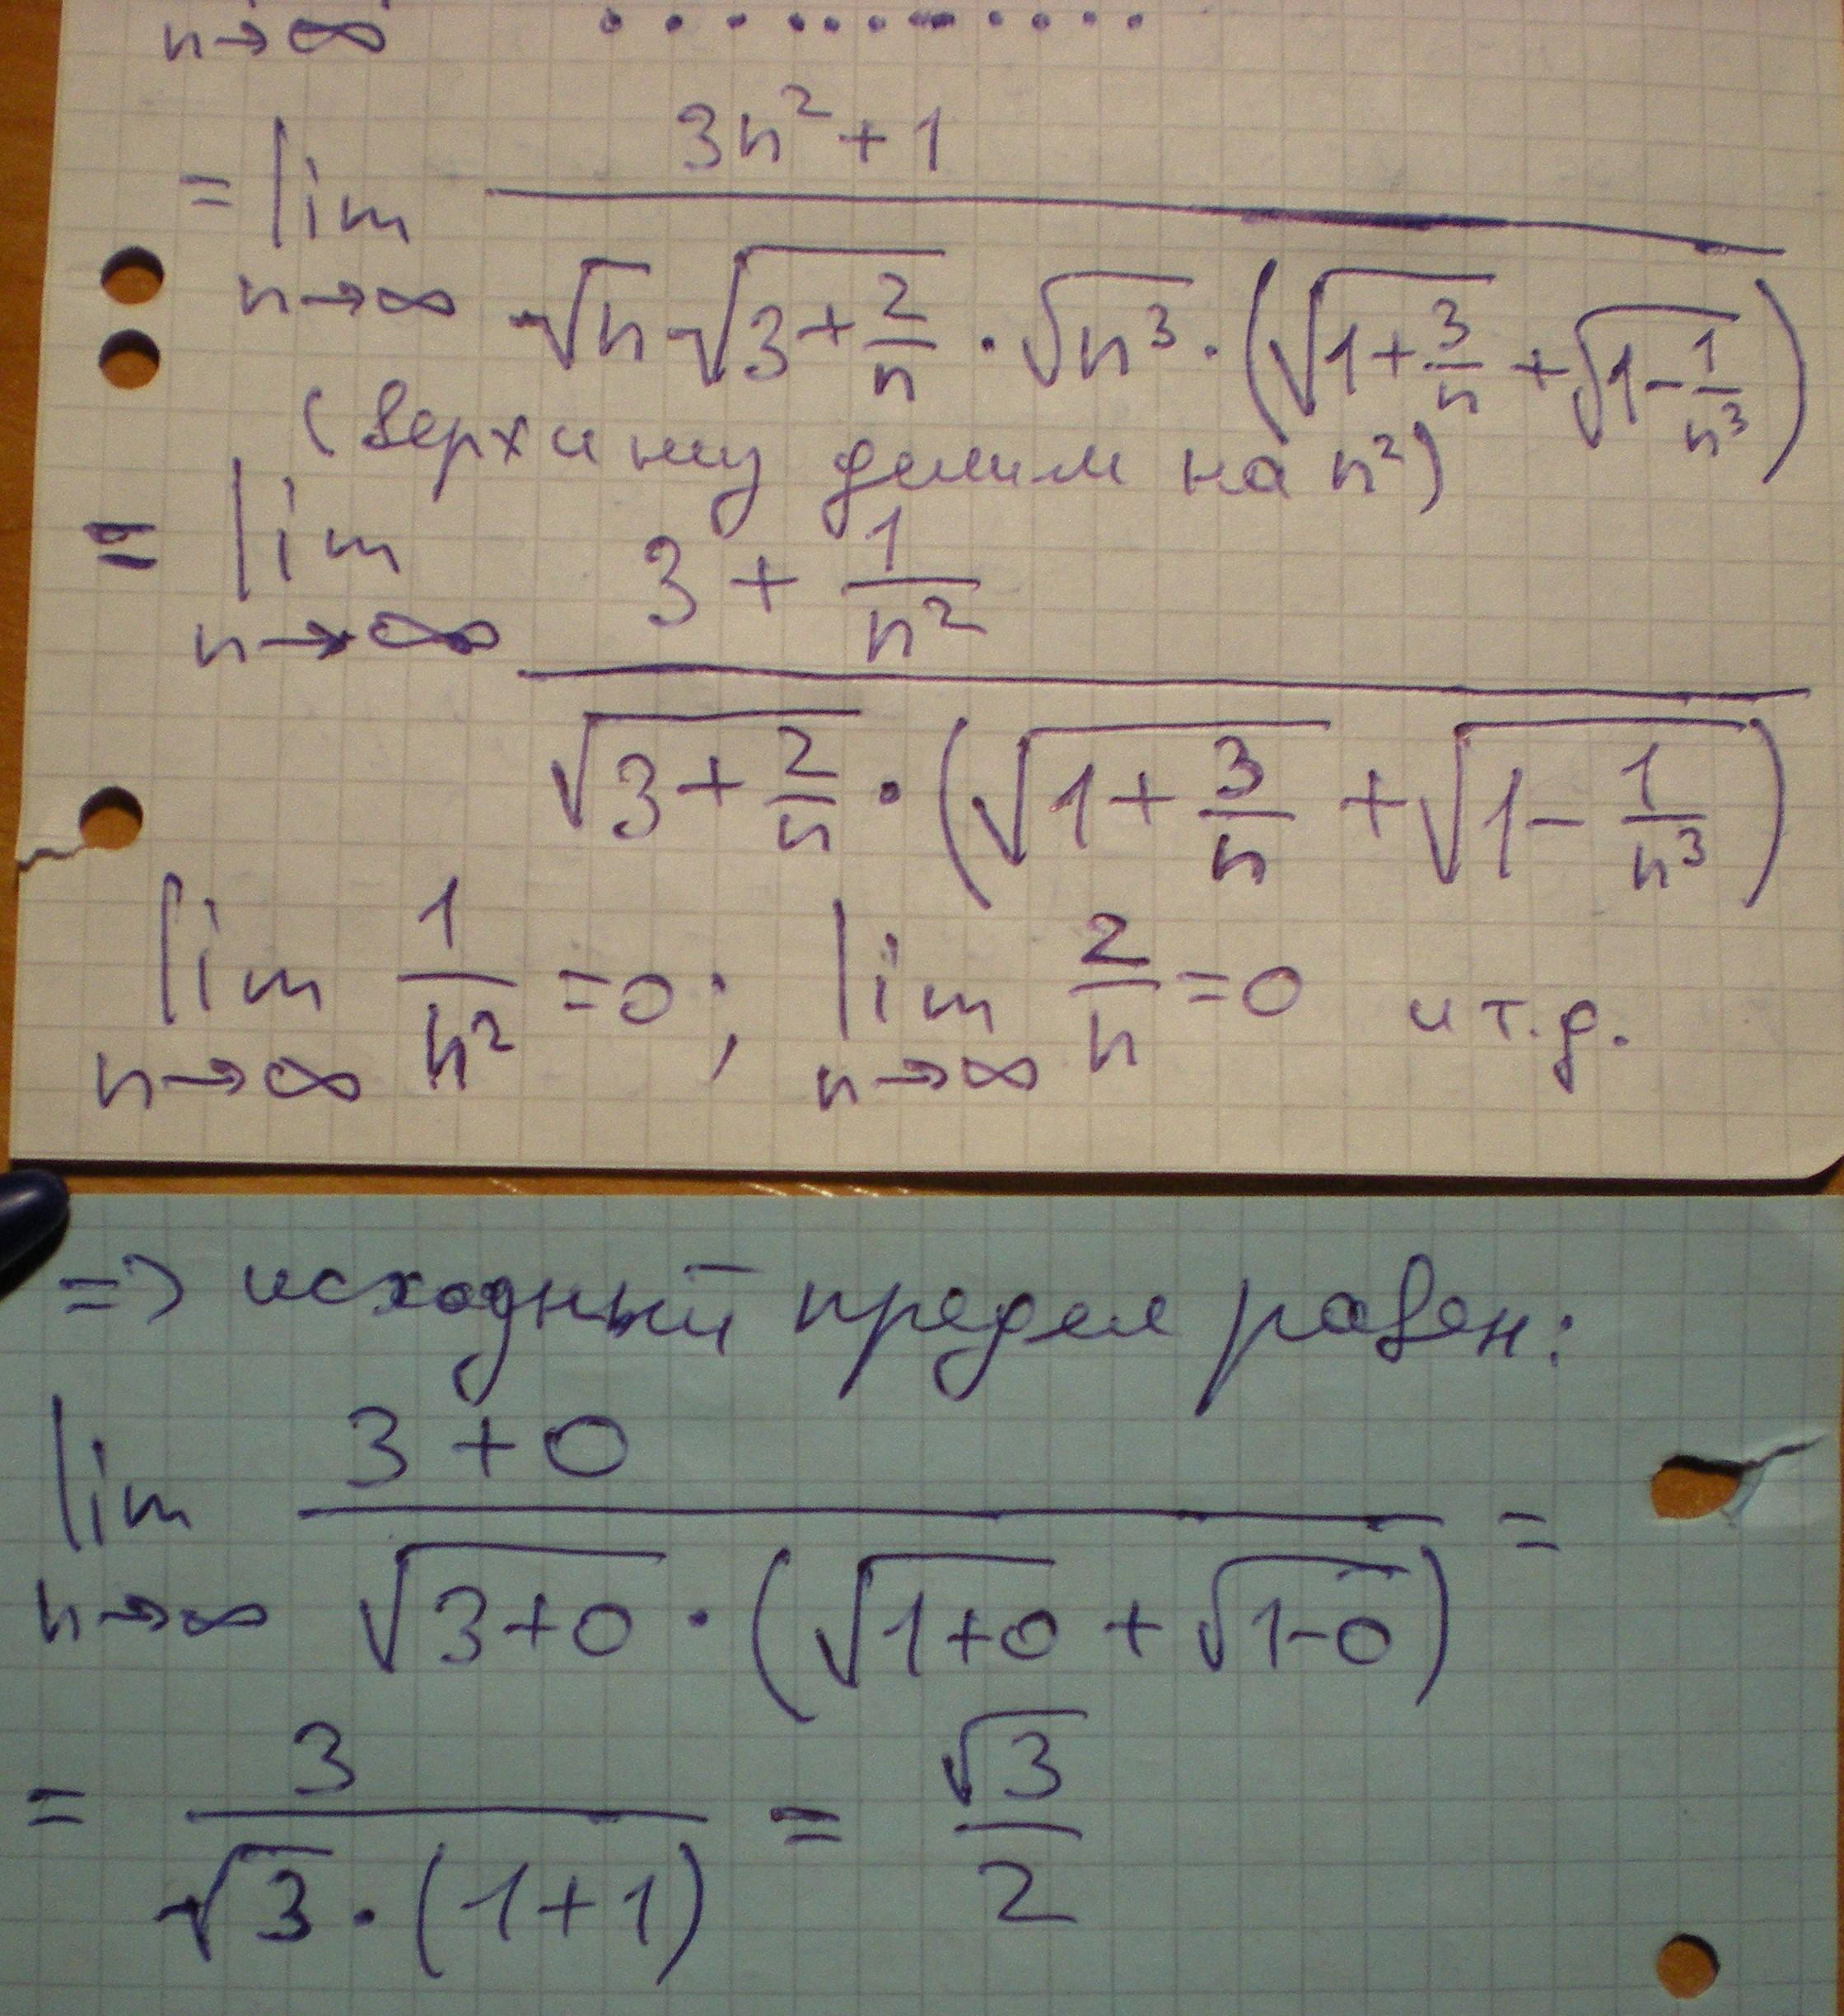 n→∞ ...........
= lim 3n²+1
n→∞ √n √3+2/n · √n³ · (√1+3/n + √1-1/n³)
(верх и низ делим на n²)
= lim 3 + 1/n²
n→∞ √3+2/n · (√1+3/n + √1-1/n³)
lim 1/n² =0; lim 2/n =0 и т.д.
n→∞ n→∞
=> исходный предел равен:
lim 3+0 =
n→∞ √3+0 · (√1+0 + √1-0)
= 3/√3·(1+1) = √3/2